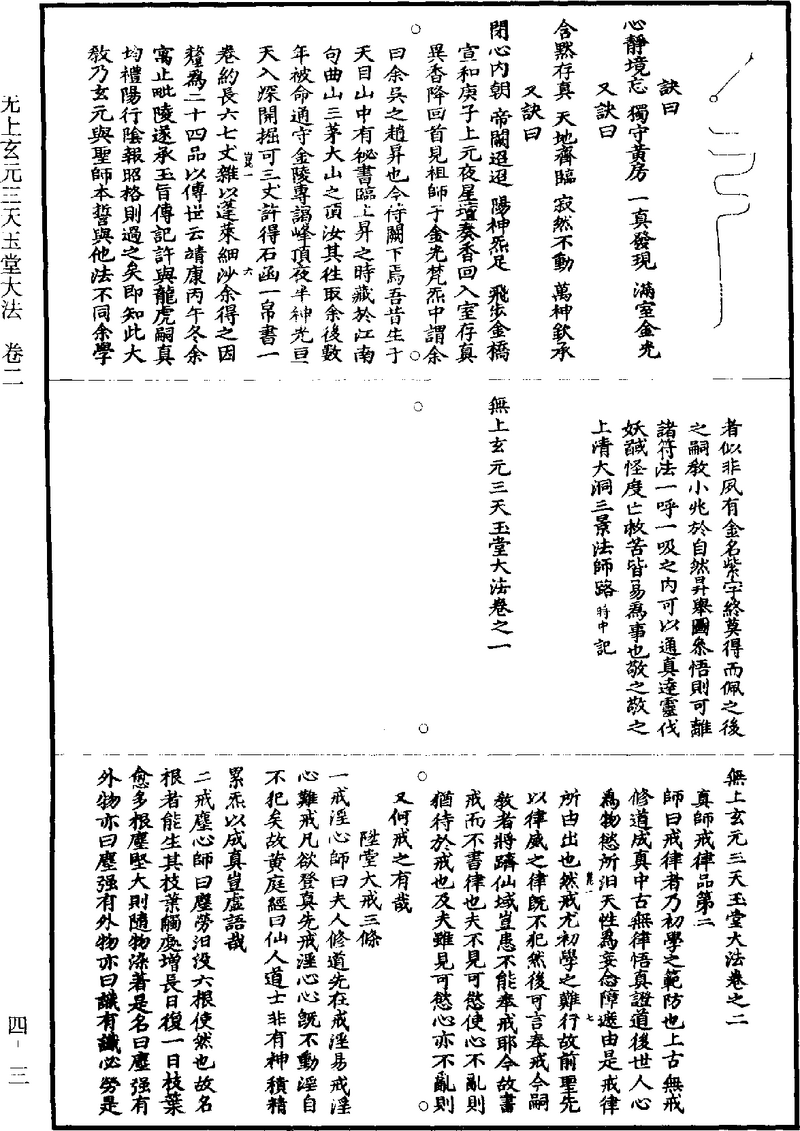 訣曰
心靜境忘 獨守黃房 一真發現 滿室金光
又訣曰
含黙存真 天地齊臨 寂然不動 萬神欽承
又訣曰
閉心內朝 帝闕迢迢 陽神炁足 飛步金橋
宣和庚子上元夜星壇奏香回入室存真
異香降回首見祖師于金光梵炁中謂余
曰余吳之趙昇也今侍闕下焉吾昔生于
天目山中有祕書臨上昇之時藏於江南
句曲山三茅大山之頂汝其往取余後數
年被命通守金陵專謁峰頂夜半神光亘
天入深開掘可三丈許得石函一帛書一
卷約長六七丈雜以蓬萊細沙余得之因
釐為二十四品以傳世云靖康丙午冬余
寓止毗陵遂承玉旨傳記許與龍虎嗣真
均禮陽行陰報昭格則過之矣即知此大
教乃玄元與聖師本誓與他法不同余學
者似非夙有金名紫字終莫得而佩之後
之嗣教小兆於自然昇舉圖參悟則可離
諸符法一呼一吸之內可以通真達靈伐
妖馘怪度亡救苦皆易為事也敬之敬之
上清大洞三景法師路時中記
無上玄元三天玉堂大法卷之一
無上玄元三天玉堂大法卷之二
真師戒律品第二
師曰戒律者乃初學之範防也上古無戒
修道成真中古無律悟真證道後世人心
為物慾所汨天性為妄念障遮由是戒律
所由出也然戒尤初學之難行故前聖先
以律威之律既不犯然後可言奉戒今嗣
教者將躋仙域豈患不能奉戒耶今故書
戒而不書律也夫不見可慾使心不亂則
猶待於戒也及夫雖見可慾心亦不亂則
又何戒之有哉
陞堂大戒三條
一戒淫心師曰夫人修道先在戒淫易戒淫
心難戒凡欲登真先戒淫心心既不動淫自
不犯矣故黃庭經曰仙人道士非有神積精
累炁以成真豈虛語哉
二戒塵心師曰塵勞汨沒六根使然也故名
根者能生其枝葉觸處增長日復一日枝葉
愈多根塵堅大則隨物染著是名曰塵強有
外物亦曰塵強有外物亦曰識有識必勞是
无上玄元三天玉堂大法 卷二
四-三